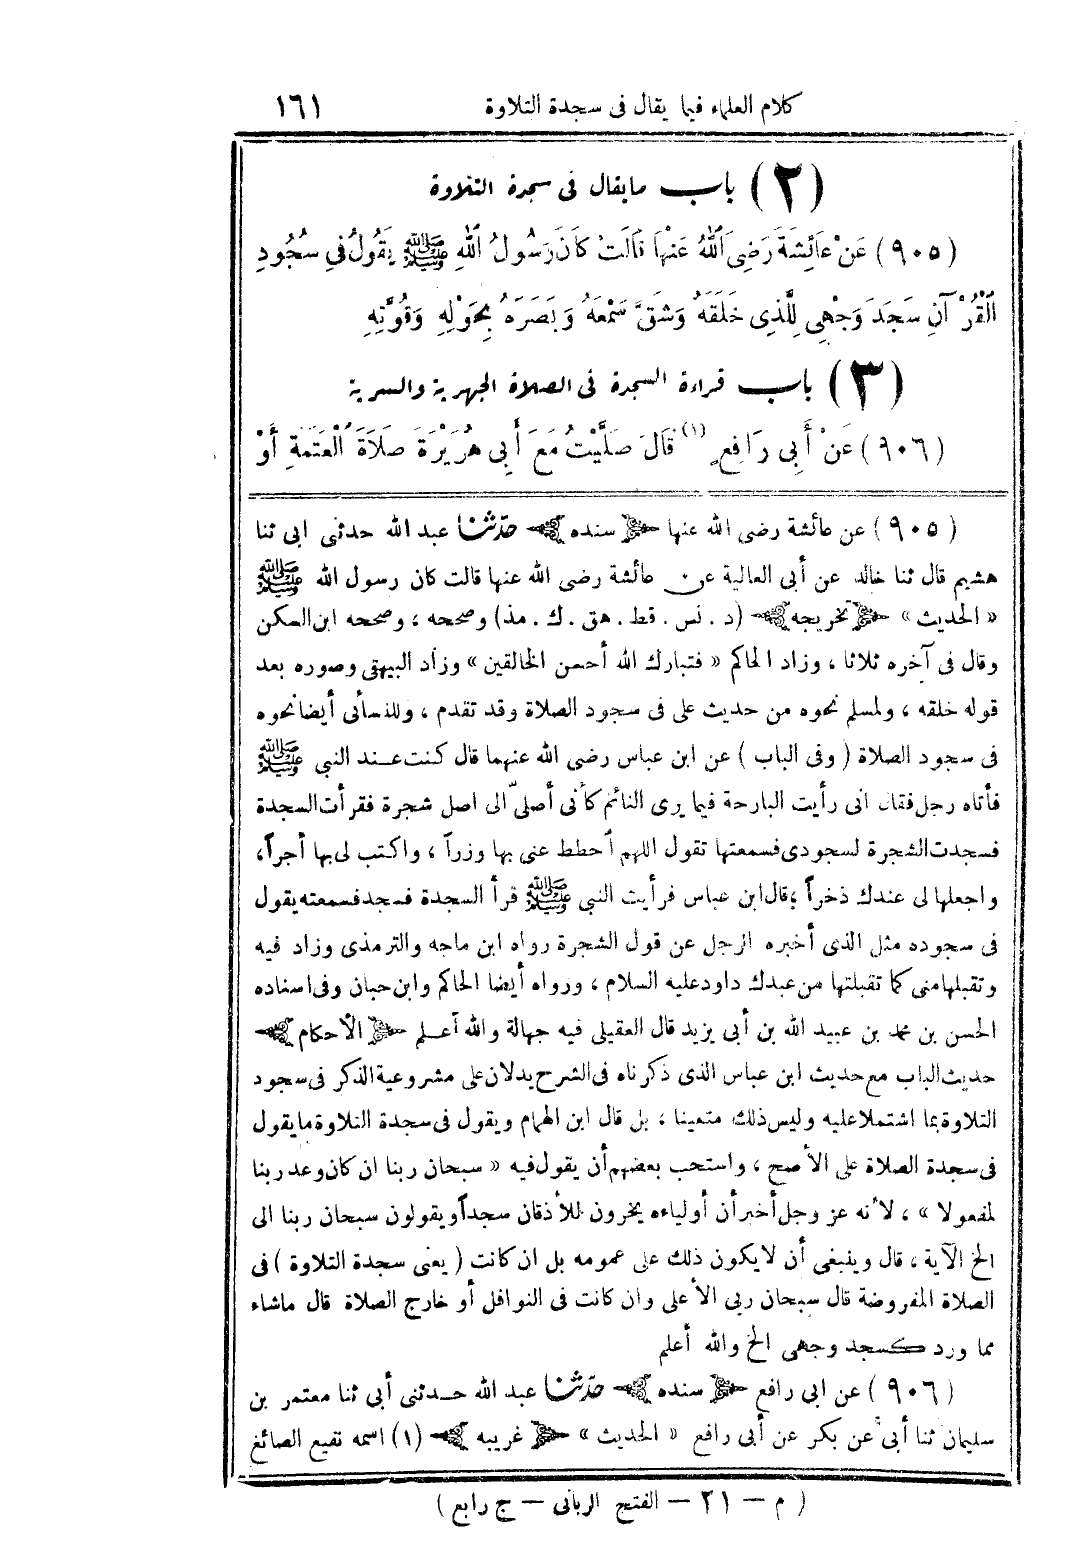 كلام العلماء فيما يقال فى سجدة التلاوة ١٦١
(٢) باب مايقال فى سجدة التلاوة
(٩٠٥) عَنْ عَائِشَةَ رَضِىَ اللهُ عَنْهَا قَالَتْ كَانَ رَسُولُ اللهِ ﷺ يَقُولُ فِى سُجُودِ
الْقُرْآنِ سَجَدَ وَجْهِى لِلَّذِى خَلَقَهُ وَشَقَّ سَمْعَهُ وَبَصَرَهُ بِحَوْلِهِ وَقُوَّتِهِ
(٣) باب قراءة السجدة فى الصلاة الجهرية والسرية
(٩٠٦) عَنْ أَبِى رَافِعٍ (١) قَالَ صَلَّيْتُ مَعَ أَبِى هُرَيْرَةَ صَلَاةَ الْعَتَمَةِ أَوْ
(٩٠٥) عن عائشة رضى الله عنها ﴿سنده﴾ حدّثنا عبد الله حدثنى ابى ثنا
هشيم قال ثنا خالد عن أبى العالية عن عائشة رضى الله عنها قالت كان رسول الله ﷺ
« الحديث » ﴿تخريجه﴾ (د . نس . قط . هق . ك . مذ) وصححه ، وصححه ابن السكن
وقال فى آخره ثلاثا ، وزاد الحاكم « فتبارك الله أحسن الخالقين » وزاد البيهقى وصوره بعد
قوله خلقه ، ولمسلم نحوه من حديث على فى سجود الصلاة وقد تقدم ، وللنسائى أيضا نحوه
فى سجود الصلاة (وفى الباب) عن ابن عباس رضى الله عنهما قال كنت عند النبى ﷺ
فأتاه رجل فقال انى رأيت البارحة فيما يرى النائم كأنى أصلى الى اصل شجرة فقرأت السجدة
فسجدت الشجرة لسجودى فسمعتها تقول اللهم أحطط عنى بها وزراً ، واكتب لى بها أجراً،
واجعلها لى عندك ذخراً ؛ قال ابن عباس فرأيت النبى ﷺ قرأ السجدة فسجد فسمعته يقول
فى سجوده مثل الذى أخبره الرجل عن قول الشجرة رواه ابن ماجه والترمذى وزاد فيه
وتقبلها منى كما تقبلتها من عبدك داود عليه السلام ، ورواه أيضا الحاكم وابن حبان وفى اسناده
الحسن بن محمد بن عبيد الله بن أبى يزيد قال العقيلى فيه جهالة والله أعلم ﴿الأحكام﴾
حديث الباب مع حديث ابن عباس الذى ذكرناه فى الشرح يدلان على مشروعية الذكر فى سجود
التلاوة بما اشتملا عليه وليس ذلك متعينا ، بل قال ابن الهمام ويقول فى سجدة التلاوة ما يقول
فى سجدة الصلاة على الأصح ، واستحب بعضهم أن يقول فيه « سبحان ربنا ان كان وعد ربنا
لمفعولا » ، لأنه عز وجل أخبر أن أولياءه يخرون للأذقان سجداً ويقولون سبحان ربنا الى
الخ الآية ، قال وينبغى أن لا يكون ذلك على عمومه بل ان كانت (يعنى سجدة التلاوة) فى
الصلاة المفروضة قال سبحان ربى الأعلى وان كانت فى النوافل أو خارج الصلاة قال ماشاء
مما ورد كسجد وجهى الخ والله أعلم
(٩٠٦) عن ابى رافع ﴿سنده﴾ حدّثنا عبد الله حدثنى أبى ثنا معتمر بن
سليمان ثنا أبى عن بكر عن أبى رافع « الحديث » ﴿غريبه﴾ (١) اسمه نفيع الصائغ
(م – ٢١ – الفتح الربانى – ج رابع)